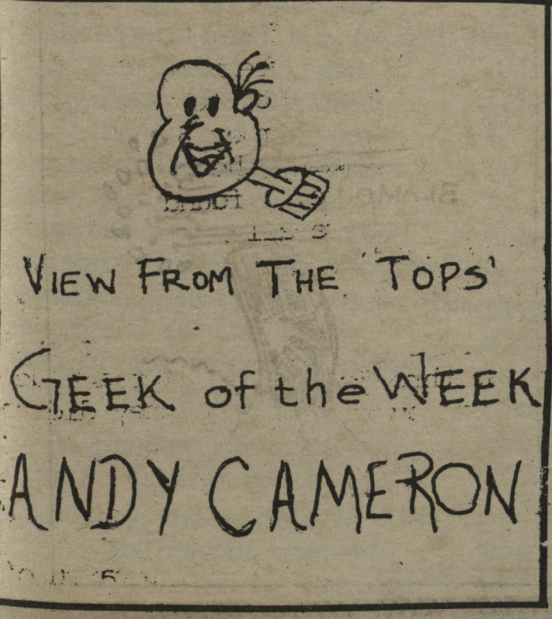 VIEW FROM THE 'TOPS'
GEEK of the WEEK
ANDY CAMERON